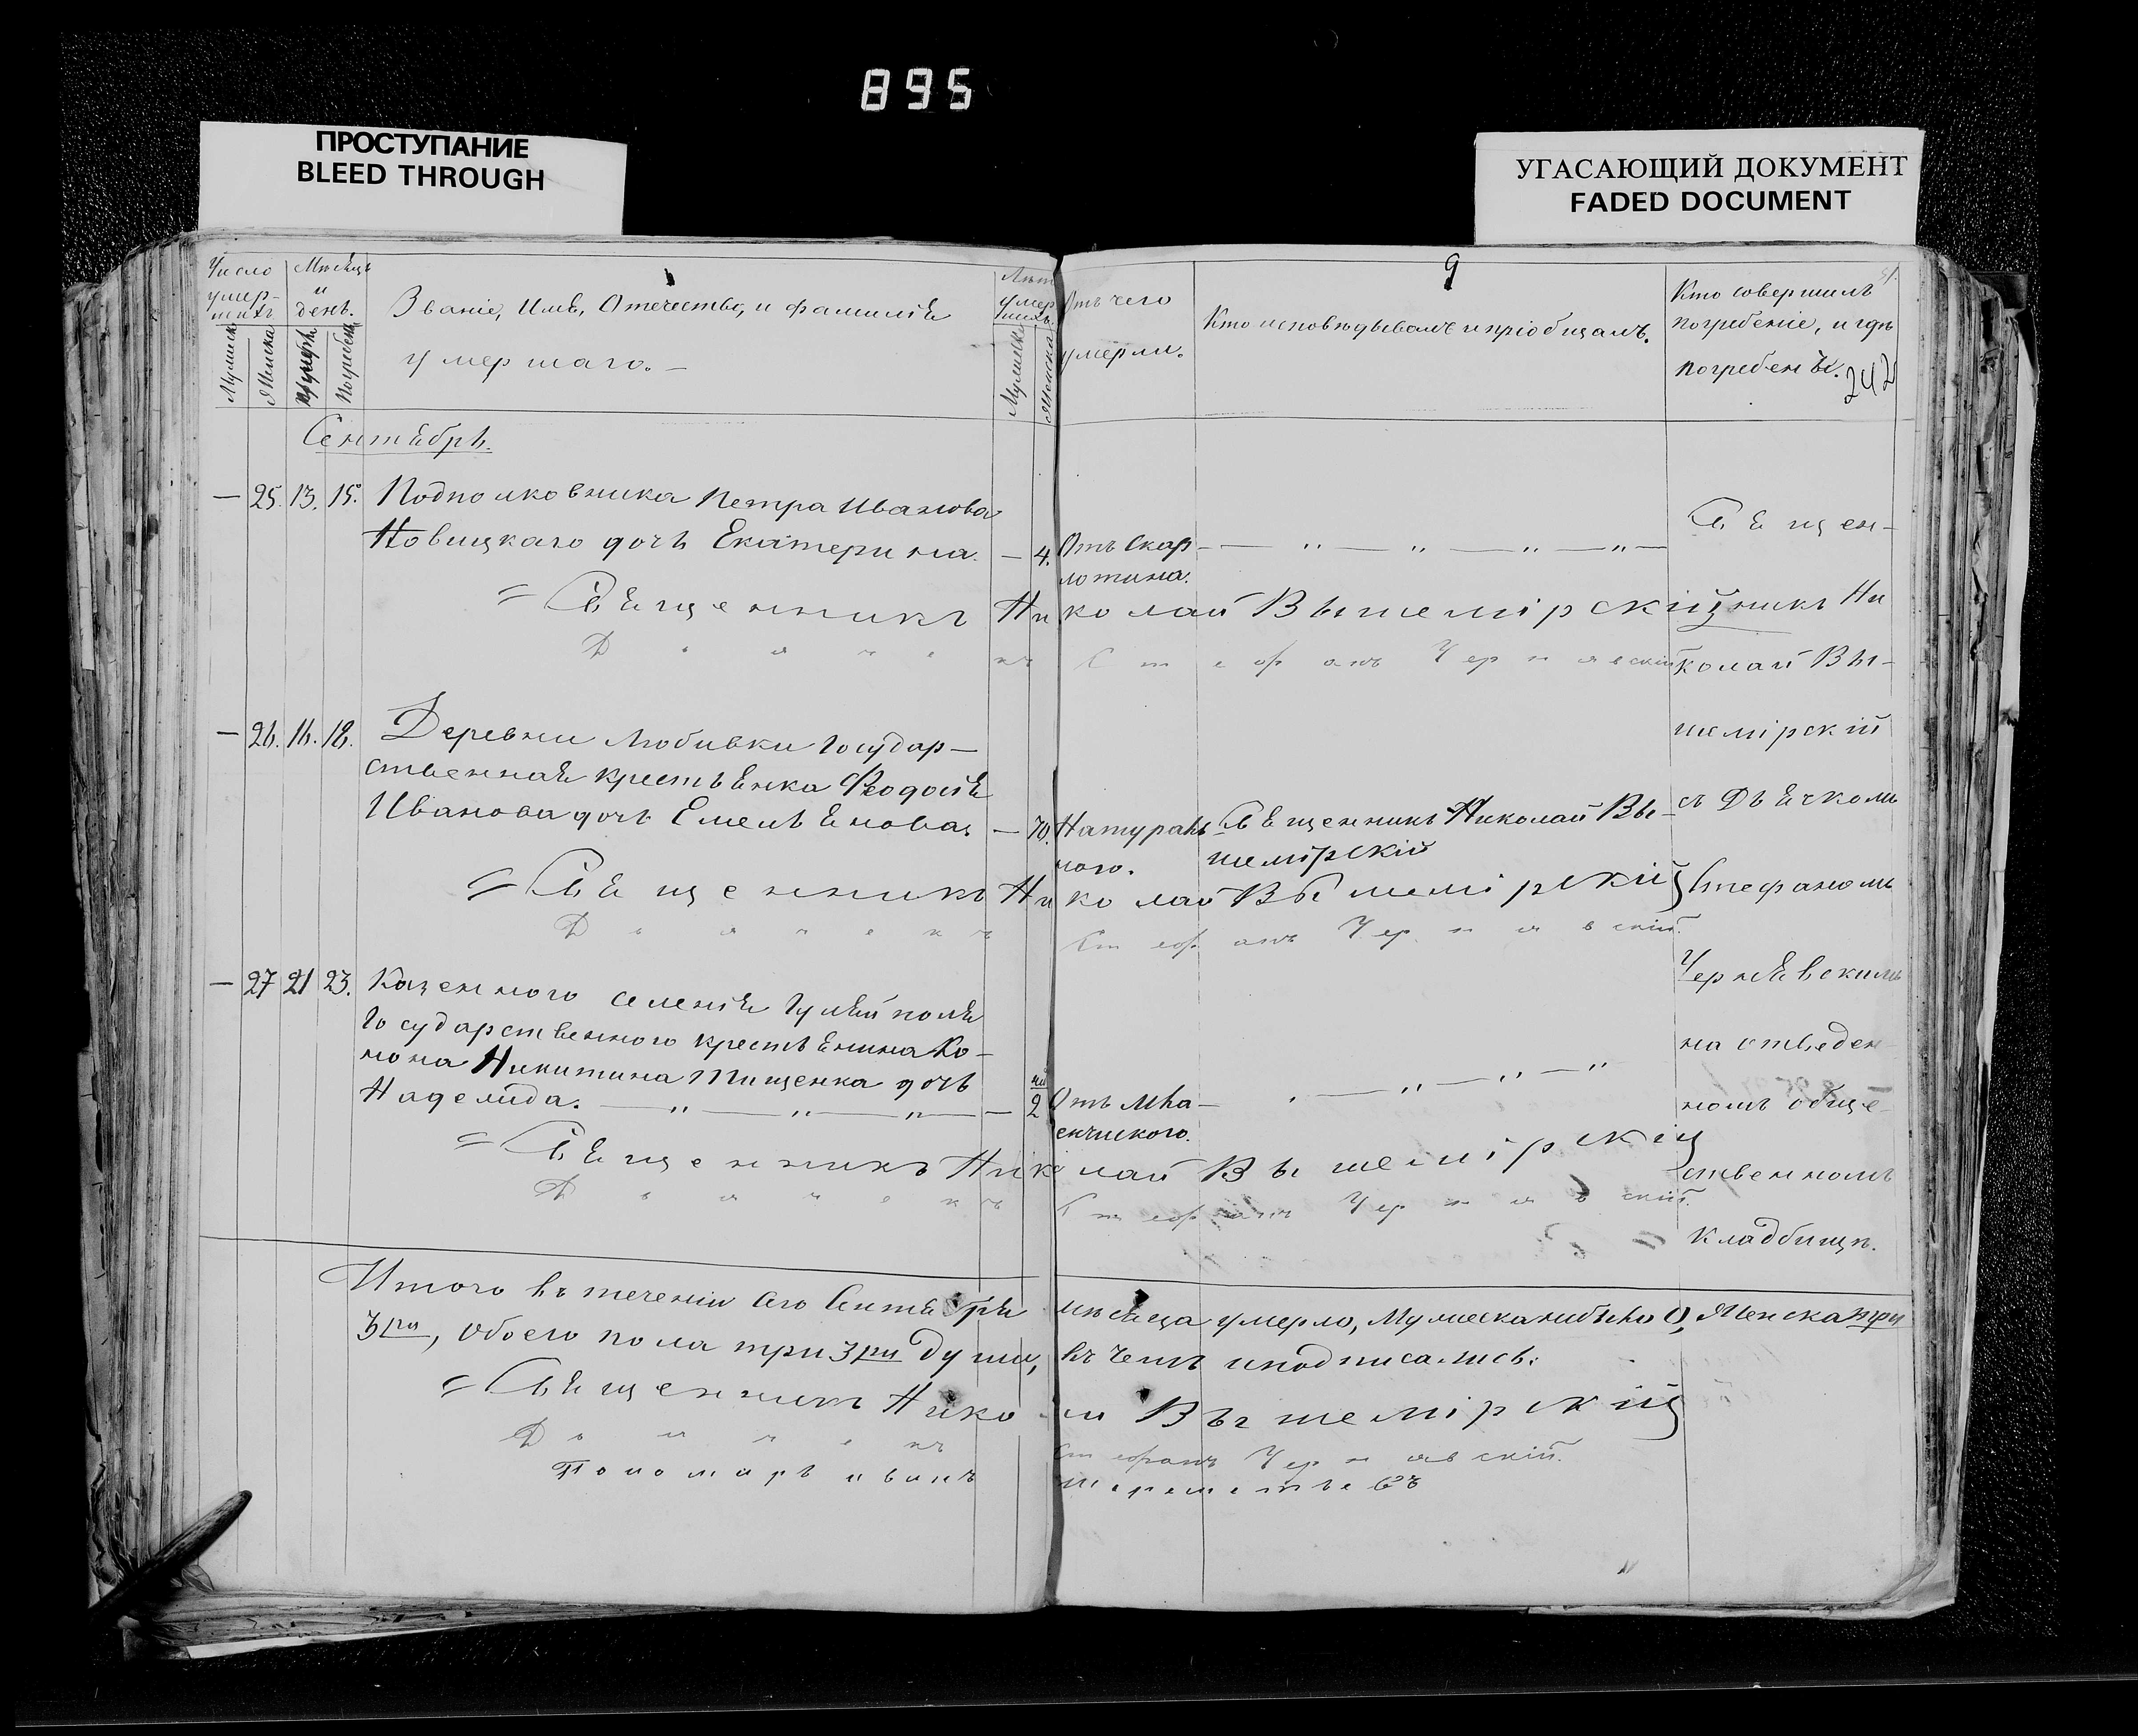 895
ПРОСТУПАНИЕ
BLEED THROUGH
УГАСАЮЩИЙ ДОКУМЕНТ
FADED DOCUMENT
Число умер-шихъ
Мужеска
Женска
Мѣсяцъ и день.
Погребен
Званіе, Имя, Отечество, и фамилія
умершаго. –
Лѣт умер шихъ.
Мужеска
Женска
Отъ чего
умерли.
9
Кто исповѣдывалъ и пріобщалъ.
Кто совершилъ
погребеніе, и гдѣ
погребены.
242
Сентябрь.
— 25. 13. 15. Подполковника Петра Иванова
Новицкаго дочь Екатерина. — 4. Отъ Скар-
лотина.
Священникъ Николай Вышемірскій
Дьячекъ Стефанъ Чернявскій
— 26. 16. 18. Деревни Любивки Государ—
ственная крестьянка Феодосія
Иванова дочь Емельянова. — 70. Натураль
ного.
Священникъ Николай Вы-
шемірскій
Священникъ Николай Вышемірскій
Дьячекъ Стефанъ Чернявскій.
— 27 21 23. Казенного селенія Гуляйполя
Государственного крестьянина Ко-
нона Никитина Тищенка дочь
Надежда. — „ — „ — „ — — 2 Отъ
Священникъ Николай Вышемірскій
Дьячекъ Стефанъ Чернявскій.
Священ-
никъ Ни
колай Вы-
шемірскій
съ Дьячкомъ
Стефаномъ
Чернявскимъ
на отведен
номъ обще-
ственномъ
Кладбищѣ.
Итого въ теченіи сего Сентября мѣсяца умерло, Мужеска 0, Женска три
3ри, обоего пола три 3ри души, въ чемъ и подписались:
Священникъ Николай Вышемірскій
Дьячекъ Стефанъ Чернявскій.
Пономарь Иванъ Шереметьевъ